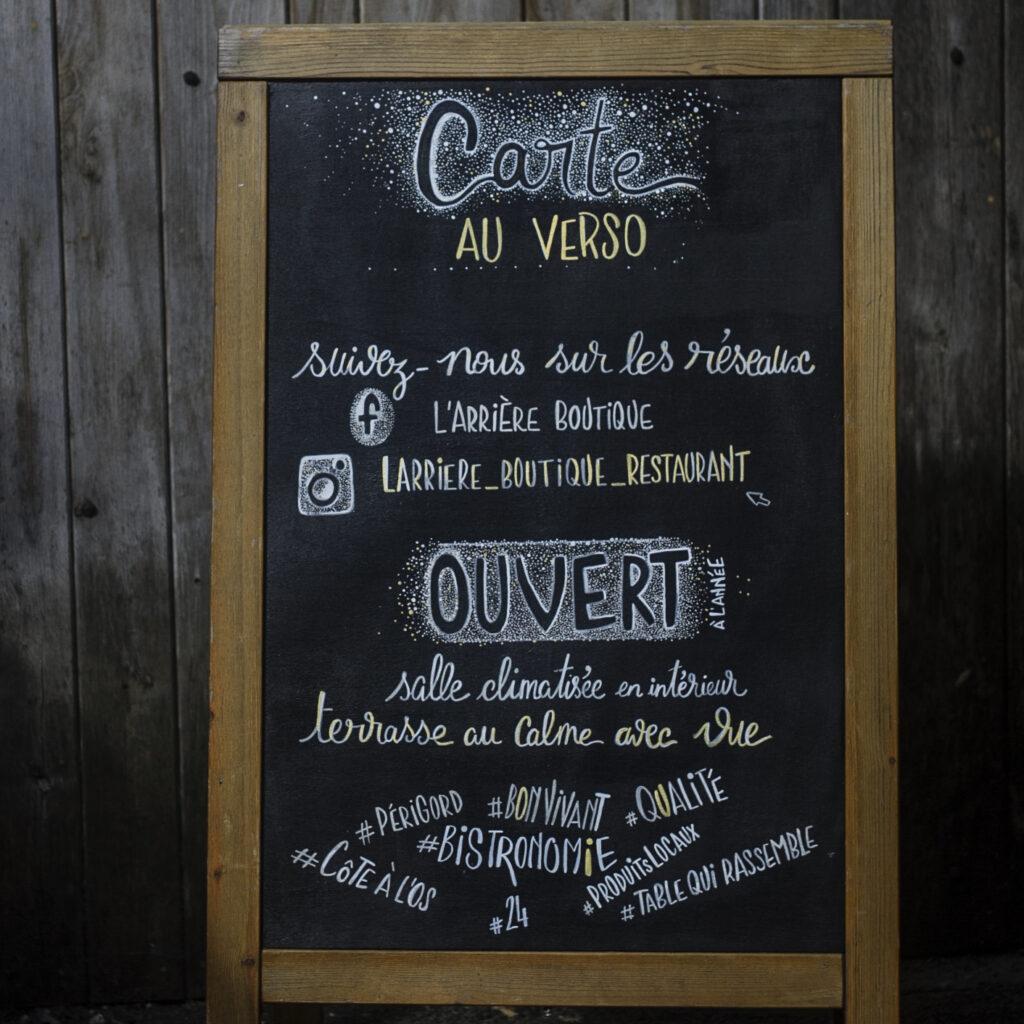 Carte
AU VERSO
suivez-nous sur les réseaux
f
L'ARRIÈRE BOUTIQUE
LARRIERE_BOUTIQUE_RESTAURANT
OUVERT
À L'ANNÉE
salle climatisée en intérieur
terrasse au calme avec vue
#PÉRIGORD #BONVIVANT #QUALITÉ
#BISTRONOMIE
#CÔTE À L'OS
#PRODUITSLOCAUX
#TABLE QUI RASSEMBLE
#24